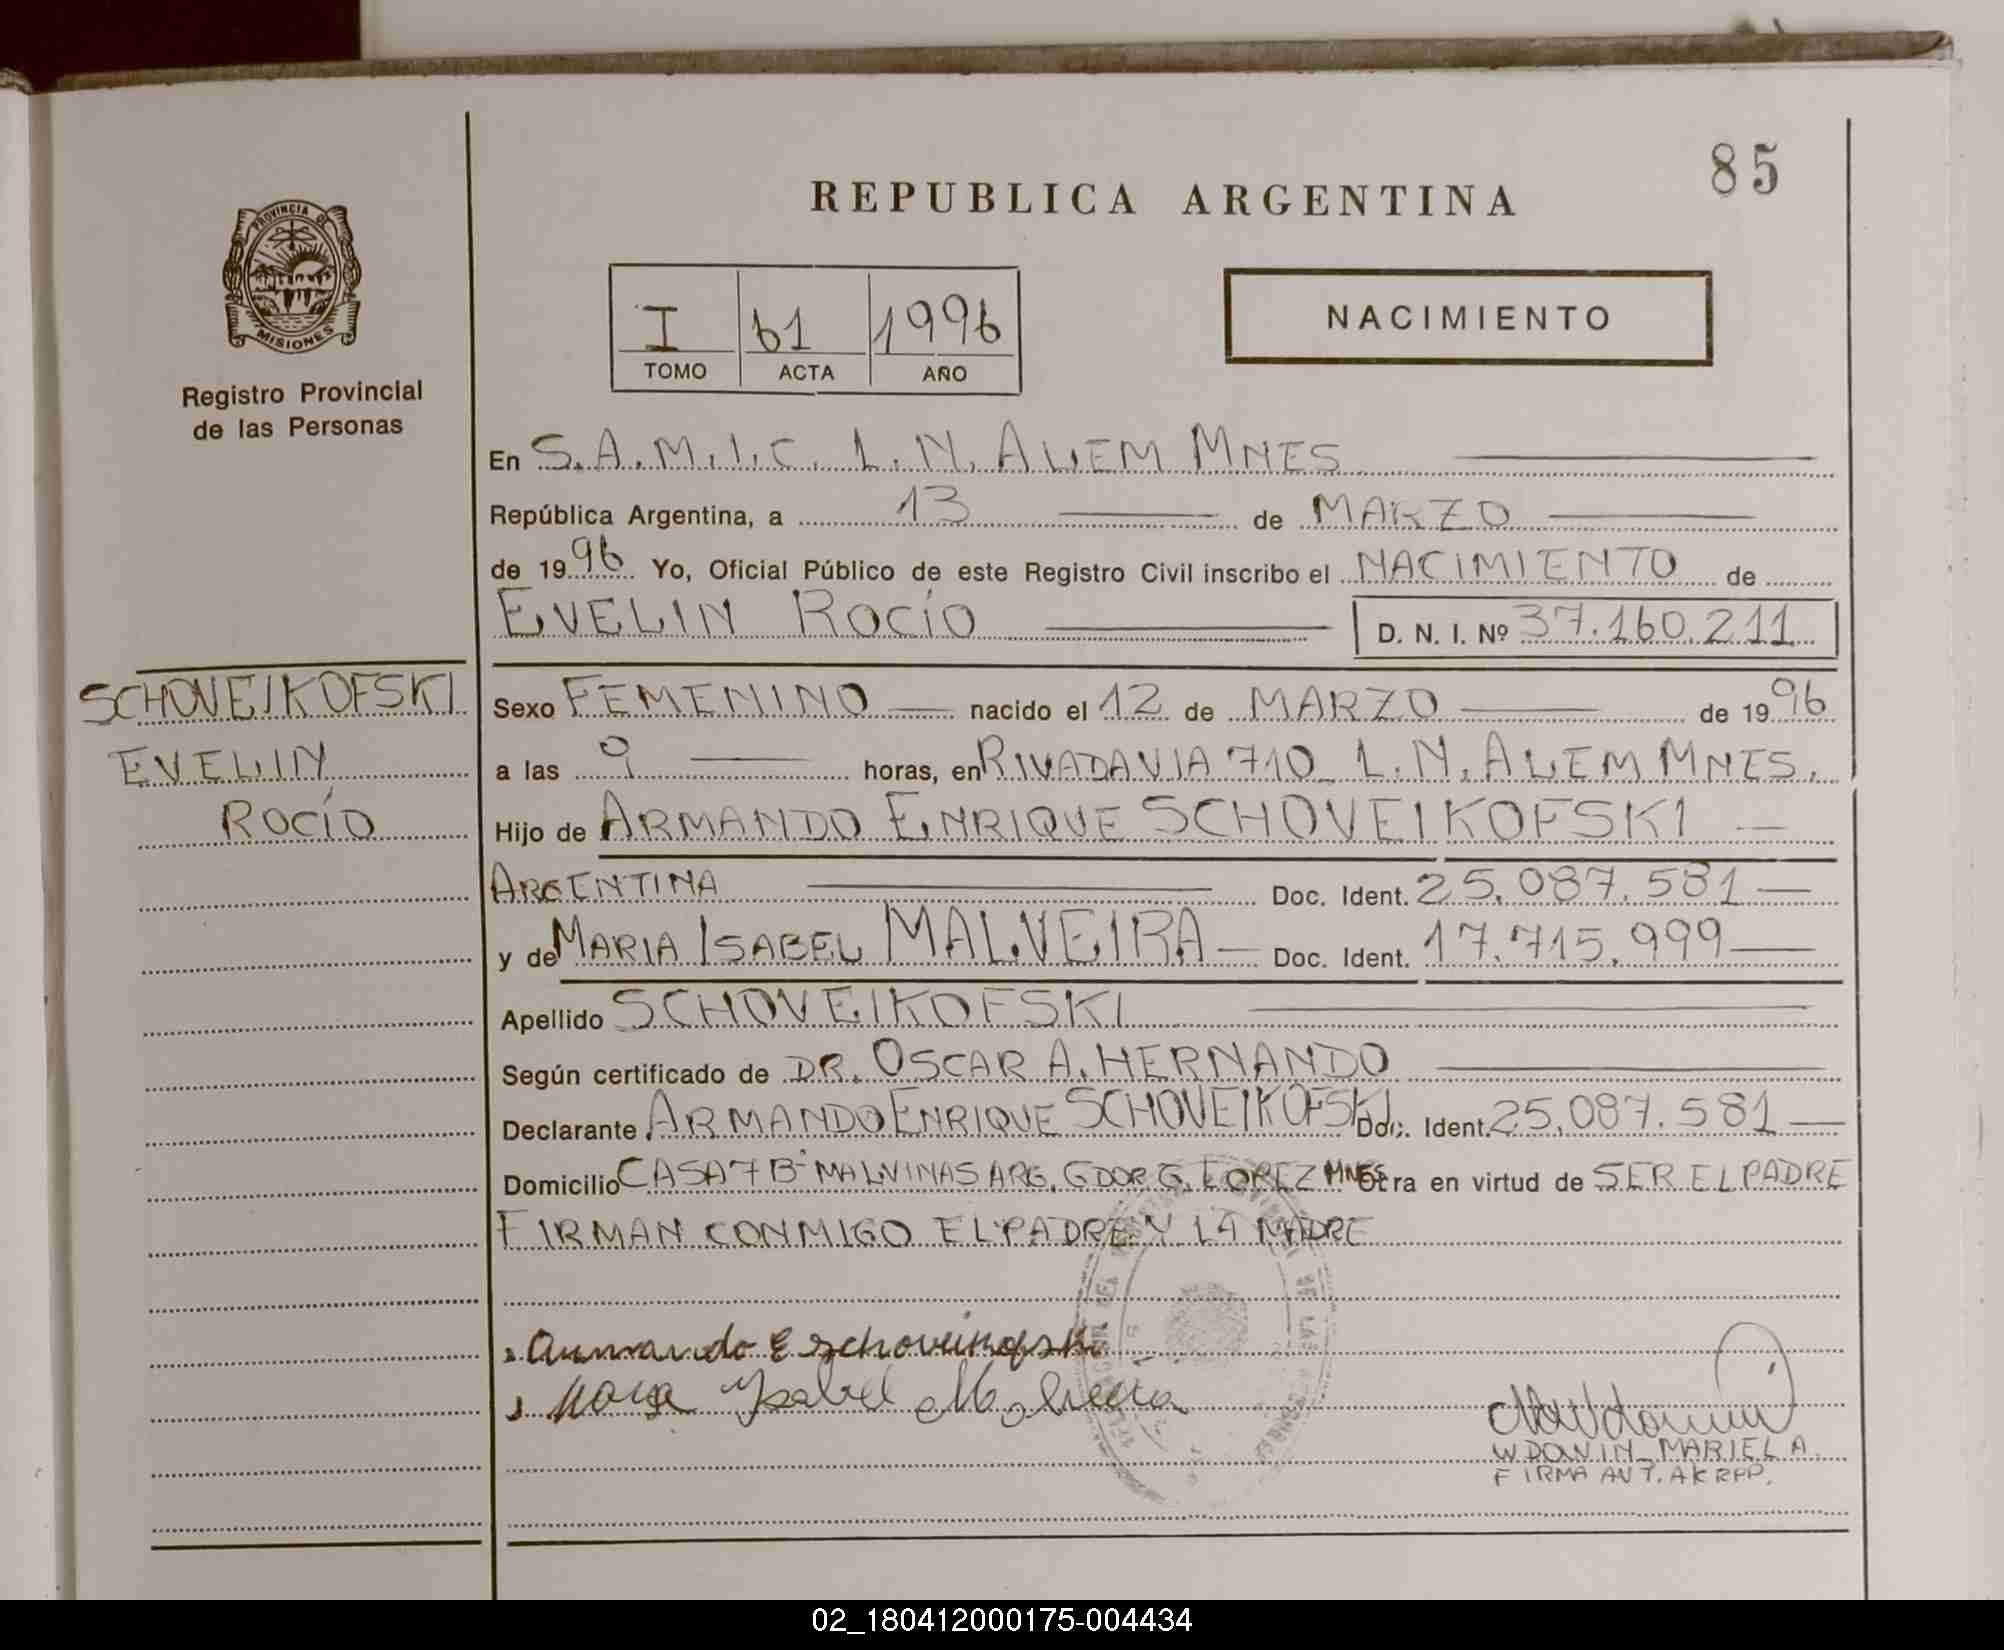 85
REPUBLICA ARGENTINA
PROVINCIA DE
MISIONES
Registro Provincial
de las Personas
I 61 1996
TOMO ACTA AÑO
NACIMIENTO
En S.A.M.I.C. L.N. ALEM MNES
República Argentina, a 13 de MARZO
de 1996 Yo, Oficial Público de este Registro Civil inscribo el NACIMIENTO de
EVELIN ROCÍO D. N. I. Nº 37.160.211
SCHOVEIKOFSKI
EVELIN
ROCÍO
Sexo FEMENINO nacido el 12 de MARZO de 1996
a las 9 horas, en RIVADAVIA 710 L.N. ALEM MNES.
Hijo de ARMANDO ENRIQUE SCHOVEIKOFSKI
ARGENTINA Doc. Ident. 25.087.581
y de MARIA ISABEL MALVEIRA Doc. Ident. 17.715.999
Apellido SCHOVEIKOFSKI
Según certificado de DR. OSCAR A. HERNANDO
Declarante ARMANDO ENRIQUE SCHOVEIKOFSKI Doc. Ident. 25.087.581
Domicilio CASA 7 Bº MALVINAS ARG. GDOR G. LOPEZ MNES Obra en virtud de SER EL PADRE
FIRMAN CONMIGO EL PADRE Y LA MADRE
Armando E schoveikofski
Maria Ysabel Malveira
WDOWIN MARIEL A.
FIRMA AUT. A
02_180412000175-004434